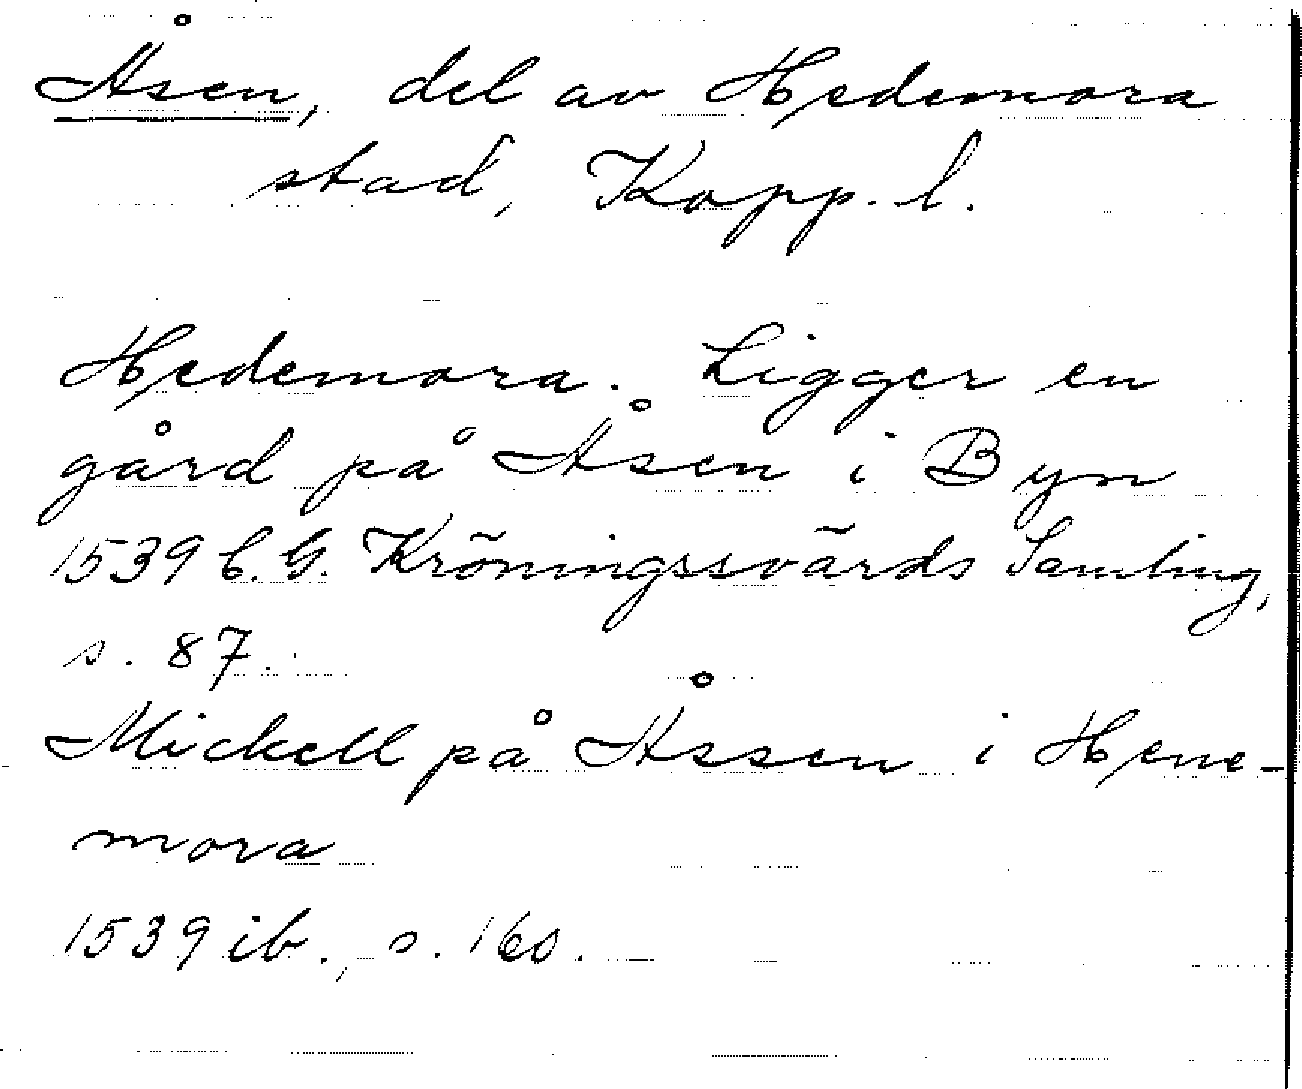 Åsen, del av Hedemora
stad, Kopp. l.
Hedemora. Ligger en
gård på Åsen i Byn
1539 C. G. Kröningssvärds Samling,
s. 87.
Mickell på Åssen i Hene-
mora
1539 ib., s. 160.